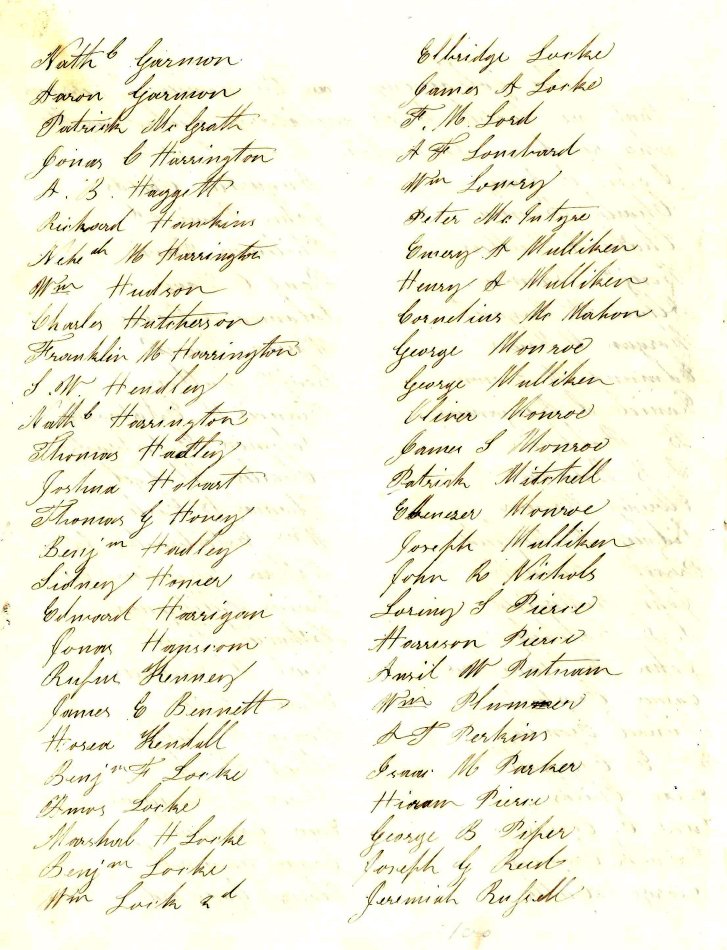 Nath C Garmon
Aaron Garmon
Patrick McGrath
Jonas C Harrington
A. B. Haggett
Richard Hawkins
Nehe ah M Harrington
Wm Hudson
Charles Hutcherson
Franklin M Harrington
S. W. Hendley
Nath C Harrington
Thomas Hadley
Joshua Hobart
Thomas G Hovey
Benjm Hadley
Sidney Homer
Edward Harrigan
Jonas Hanscom
Rufus Kenney
James E Bennett
Hosea Kendall
Benjm F Locke
Amos Locke
Marshal H Locke
Benjm Locke
Wm Lock 2d
Elbridge Locke
James A Locke
F. M Lord
A F Lombard
Wm Lowry
Peter McIntyre
Emery A Mulliken
Henry A Mulliken
Cornelius Mc Mahon
George Monroe
George Mulliken
Oliver Monroe
James S Monroe
Patrick Mitchell
Ebenezer Monroe
Joseph Mulliken
John R Nichols
Loring S Pierce
Harrison Pierce
Ansil W Putnam
Wm Plummer
A T Perkins
Isaac M Parker
Hiram Pierce
George B Piper
Joseph G Reed
Jeremiah Russell